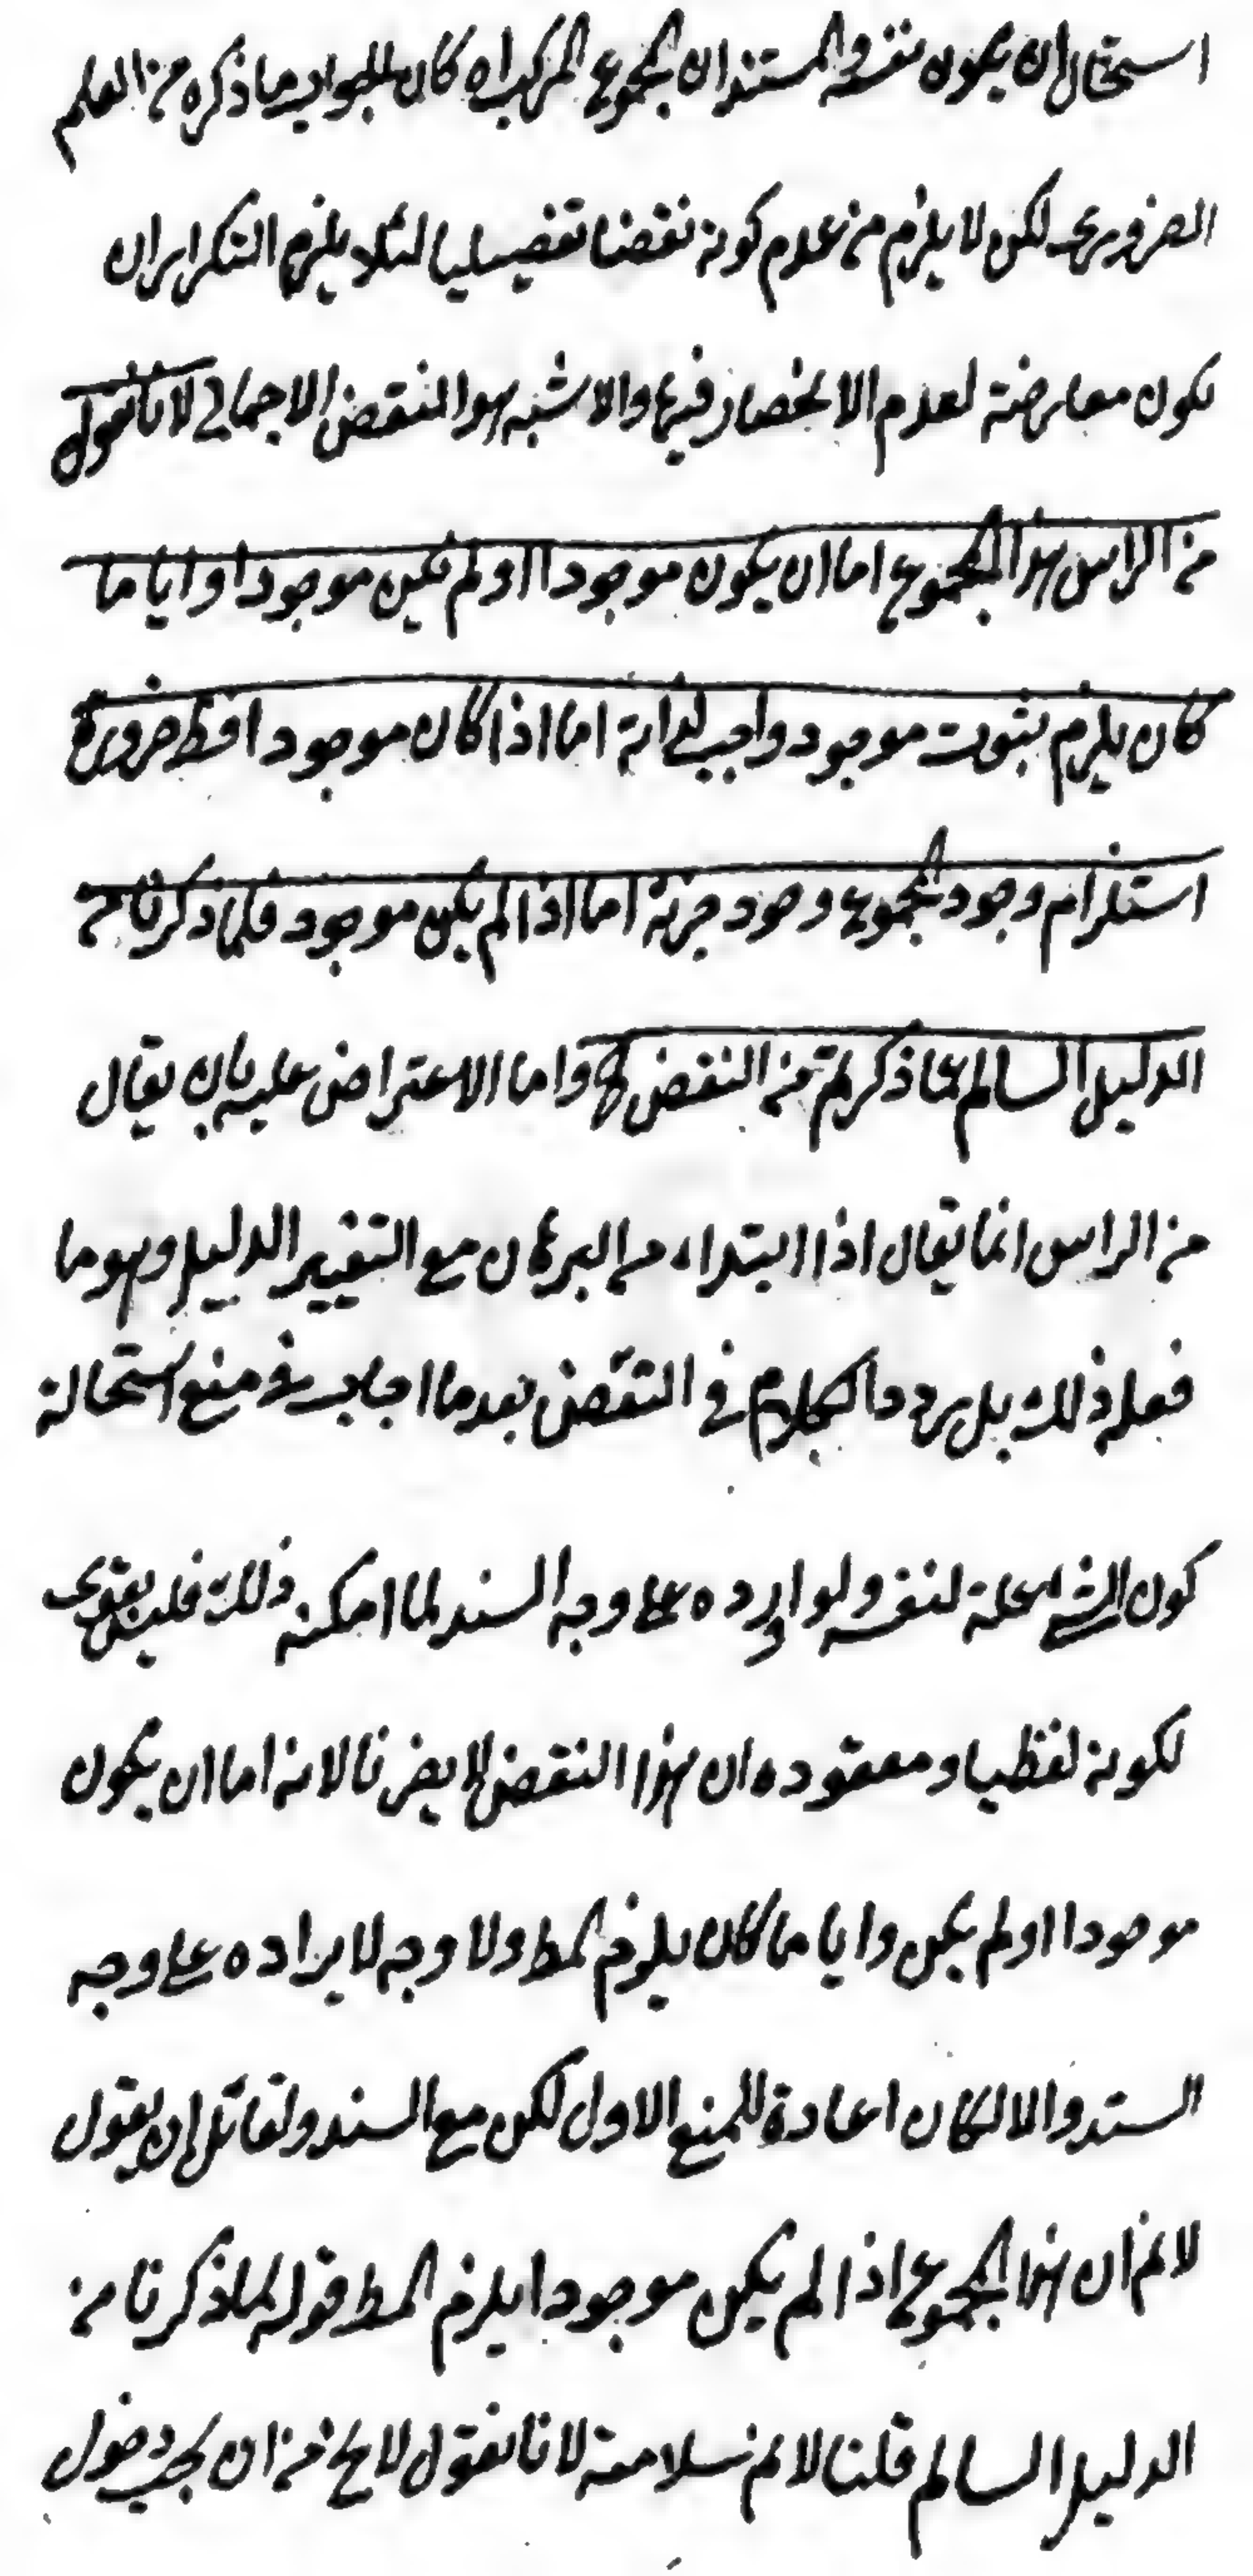 استحال ان يكون نفسه والمستند ان المجموع المركب اه كان الجواب ما ذكره من العلم
الضروري لكن لا يلزم من عدم كونه نقضا تفصيليا لئلا يلزم التكرار ان
يكون معارضة لعدم الانحصار فيها والاشبه هو النقض الاجمالي لانا نقول
من الراس هذا المجموع اما ان يكون موجودا اولم يكن موجودا وايا ما
كان يلزم ثبوت موجود واجب لذاته اما اذا كان موجودا فظ ضرورة
استلزام وجود المجموع وجود جزئه اما اذا لم يكن موجود فلما ذكرنا من
الدليل السالم عما ذكرتم من النقض واما الاعتراض عليه بان يقال
من الراس انما يقال اذا ابتداء من البرهان مع التغيير الدليل وهو ما
فعله ذلك بل يردد الكلام في النقض بعد ما اجاب في منع استحالة
كون الشيء علة لنفسه ولو اورده على وجه السند لما امكنه ذلك فليس بقوى
لكونه لفظيا ومعقوده ان هذا النقض لا يضرنا لانه اما ان يكون
موجودا اولم يكن وايا ما كان يلزم المط ولا وجه لايراده على وجه
السند والا لكان اعادة للمنع الاول لكن مع السند ولقائل ان يقول
لا نم ان هذا المجموع اذا لم يكن موجودا يلزم المط قوله لما ذكرنا من
الدليل السالم قلنا لا نم سلامته لانا نقول لا يخ من ان يجب دخول